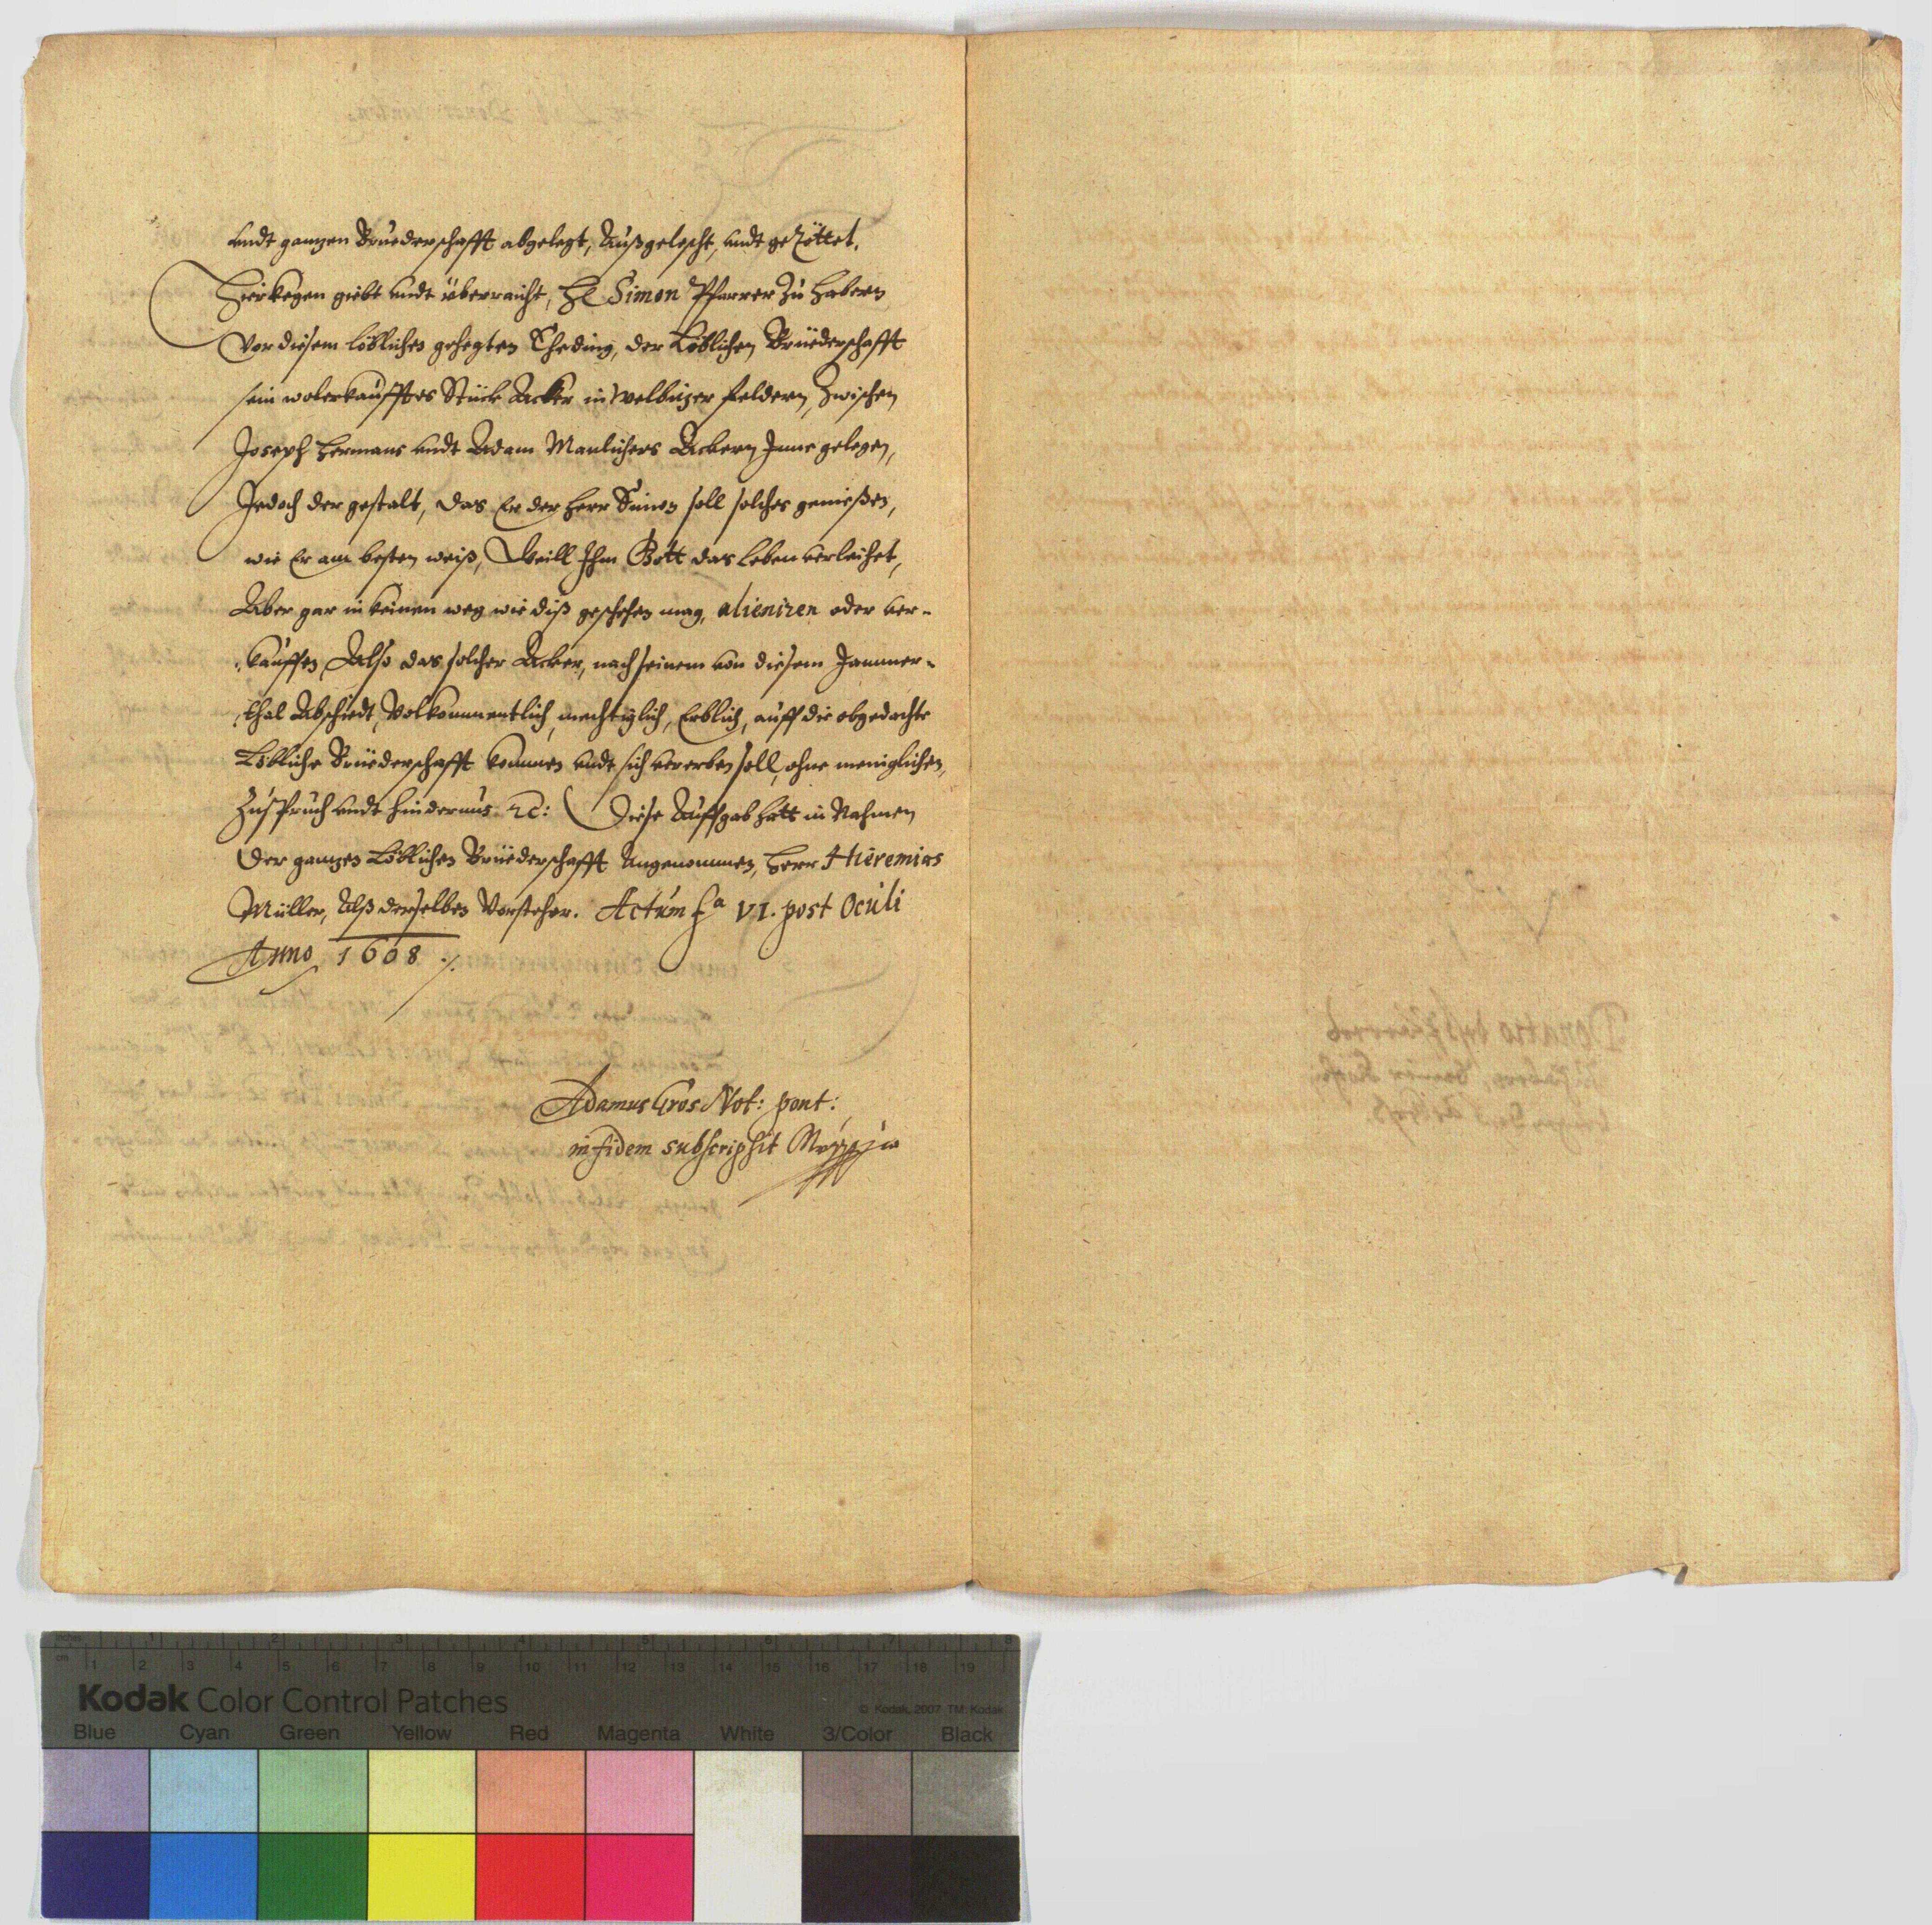 vndt ganzen Bruederschafft abgelegt, Außgelescht, vndt getöttet.
Hierkegen giebt vndt überraicht, H Simon Pfarrer zu Habern
Vor diesem löblichen gehegten Theding, der Löblichen Brüederschafft
sein wolerkaufftes Stück Acker in Welbizer feldern, Zwischen
Joseph Hermans vndt Adam Manlichers Ackern Inne gelegen,
Jedoch der gestalt, das Er der Herr Simon soll solches genießen,
wie Er am besten weiß, Weill Ihm Gott das Leben verleihet,
Aber gar in keinen weg wie diß geschehen mag, alieniren oder ver-
kauffen, Also das solcher Acker, nach seinem von diesem Jammer-
thal Abschiedt, Volkommentlich, mechtiglich, Erblich, auff die obgedachte
Löbliche Brüederschafft kommen vndt sich vererben soll, ohne meniglichen,
Zuspruch vndt hindernus ꝛc: Diese Auffgab hatt in Nahmen
Der ganzen Löblichen Brüederschafft Angenommen, Herr Hieremias
Müller, Alß derselben Vorsteher. Actum fa VI. post Oculi
Anno 1608 ./.
Adamus Gros Not: pont:
in fidem subscripsit
Kodak Color Control Patches
© Kodak, 2007 TM: Kodak
Inches 1 2 3 4 5 6 7 8
cm 1 2 3 4 5 6 7 8 9 10 11 12 13 14 15 16 17 18 19
Blue Cyan Green Yellow Red Magenta White 3/Color Black